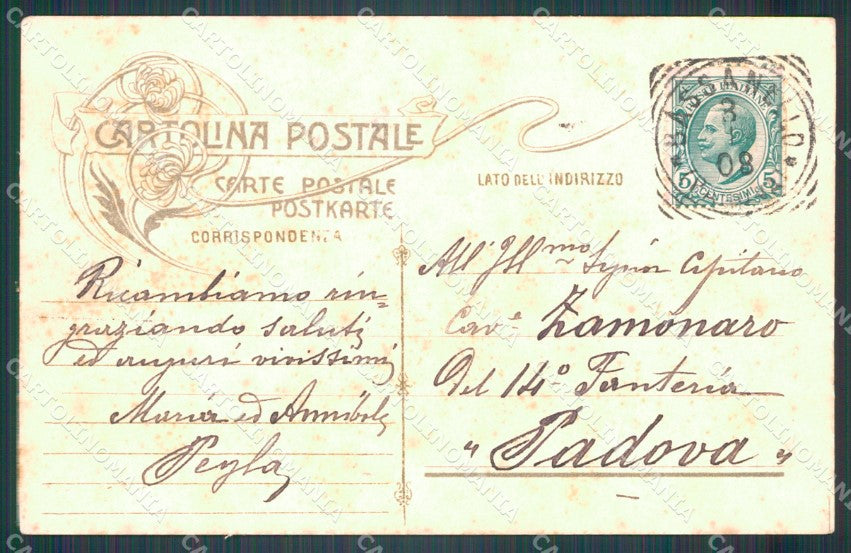 CARTOLINA POSTALE
CARTE POSTALE
POSTKARTE
CORRISPONDENZA
LATO DELL'INDIRIZZO
5 CENTESIMI 5
3
08
Ricambiamo rin-
graziando saluti
ed auguri vivissimi
Maria ed Annibale
Peyla
All' Ill.mo Signor Capitano
Cav.e Zamonaro
Del 14° Fanteria
"Padova"
CARTOLINOMANIA